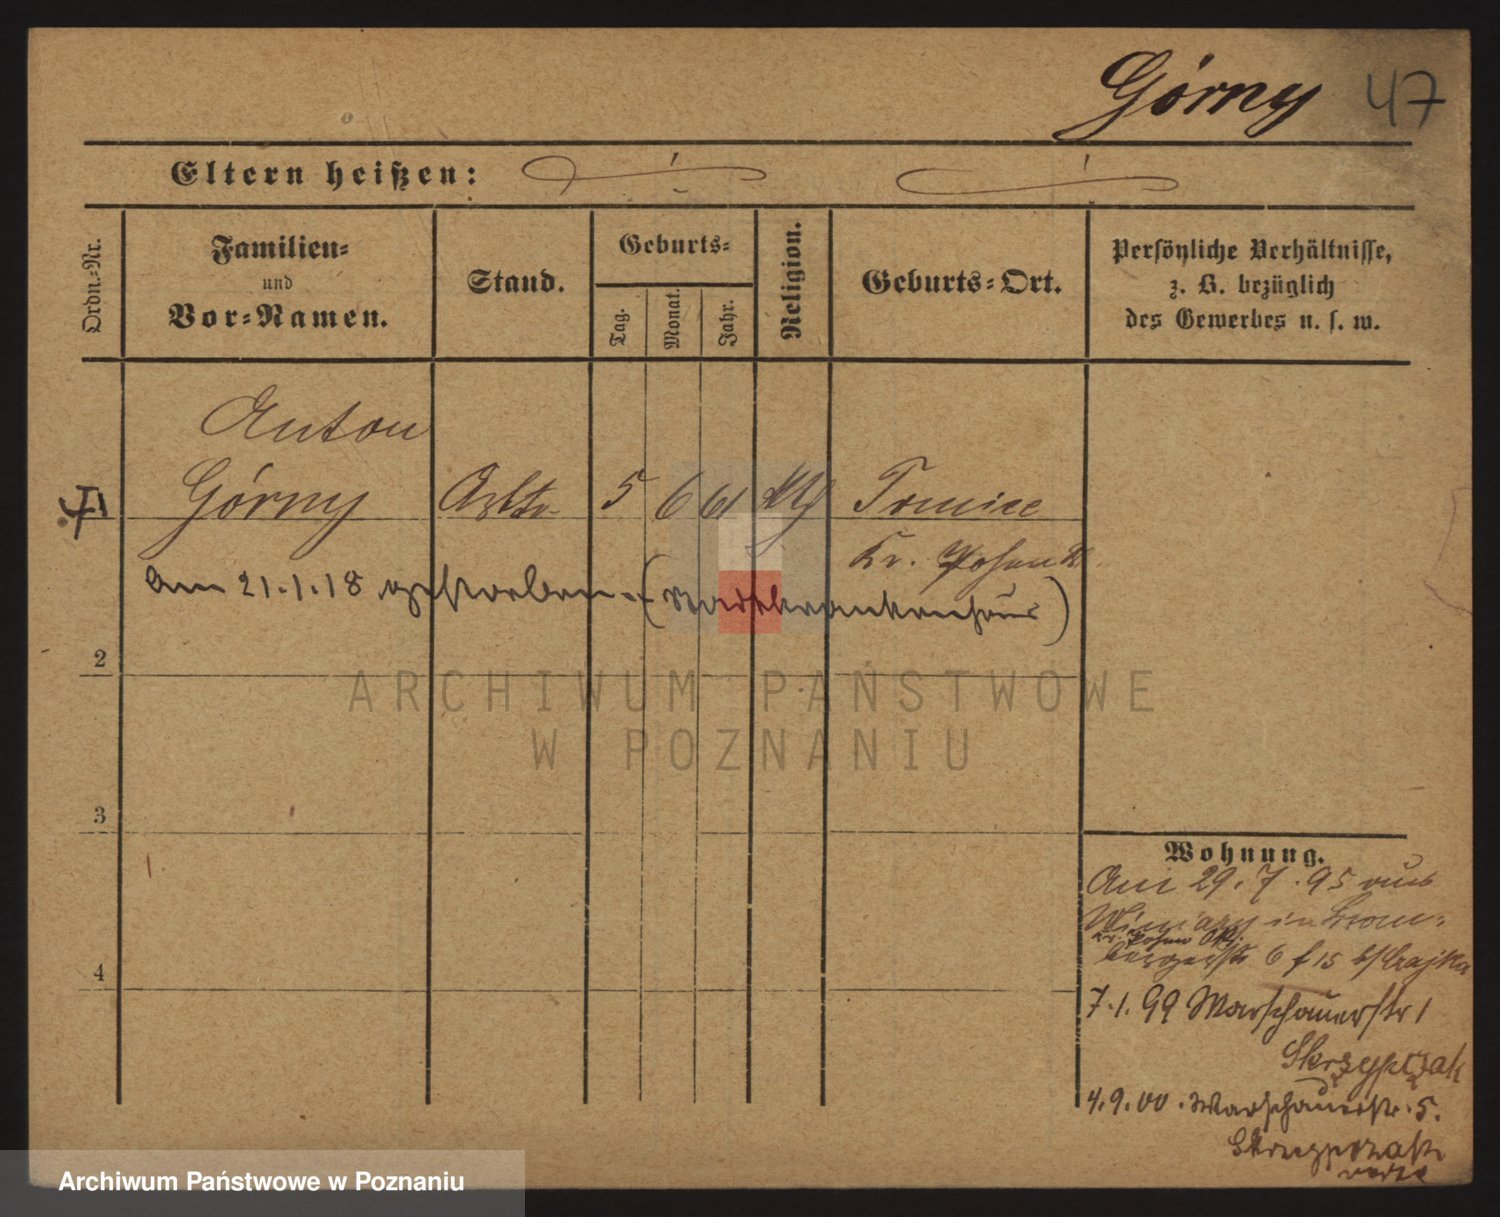 Górny 47
Eltern heißen:
Ordn.-Nr.
Familien-
und
Vor-Namen.
Stand.
Geburts-
Tag.
Monat.
Jahr.
Religion.
Geburts-Ort.
Persönliche Verhältnisse,
z. B. bezüglich
des Gewerbes u. s. w.
Anton
1 Górny Arbtr 5 6 61 kth
Kr. Posen W.
am 21.1.18 gestorben. (Stadtkrankenhaus)
2
3
4
Wohnung.
Am 29.7.95 aus
Winiary in Brom-
Kr. Posen Ost
bergerstr 6 f 15 b/
7.1.99 Warschauerstr 1
Skrzypczak
4.9.00. Warschauerstr. 5.
Skrzypczak
ARCHIWUM PAŃSTWOWE
W POZNANIU
Archiwum Państwowe w Poznaniu